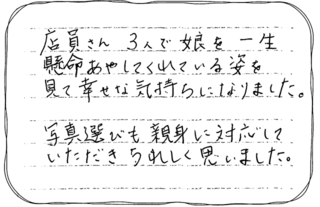 店員さん 3人で娘を一生
懸命あやしてくれている姿を
見て幸せな気持ちになりました。
写真選びも親身に対応して
いただきうれしく思いました。